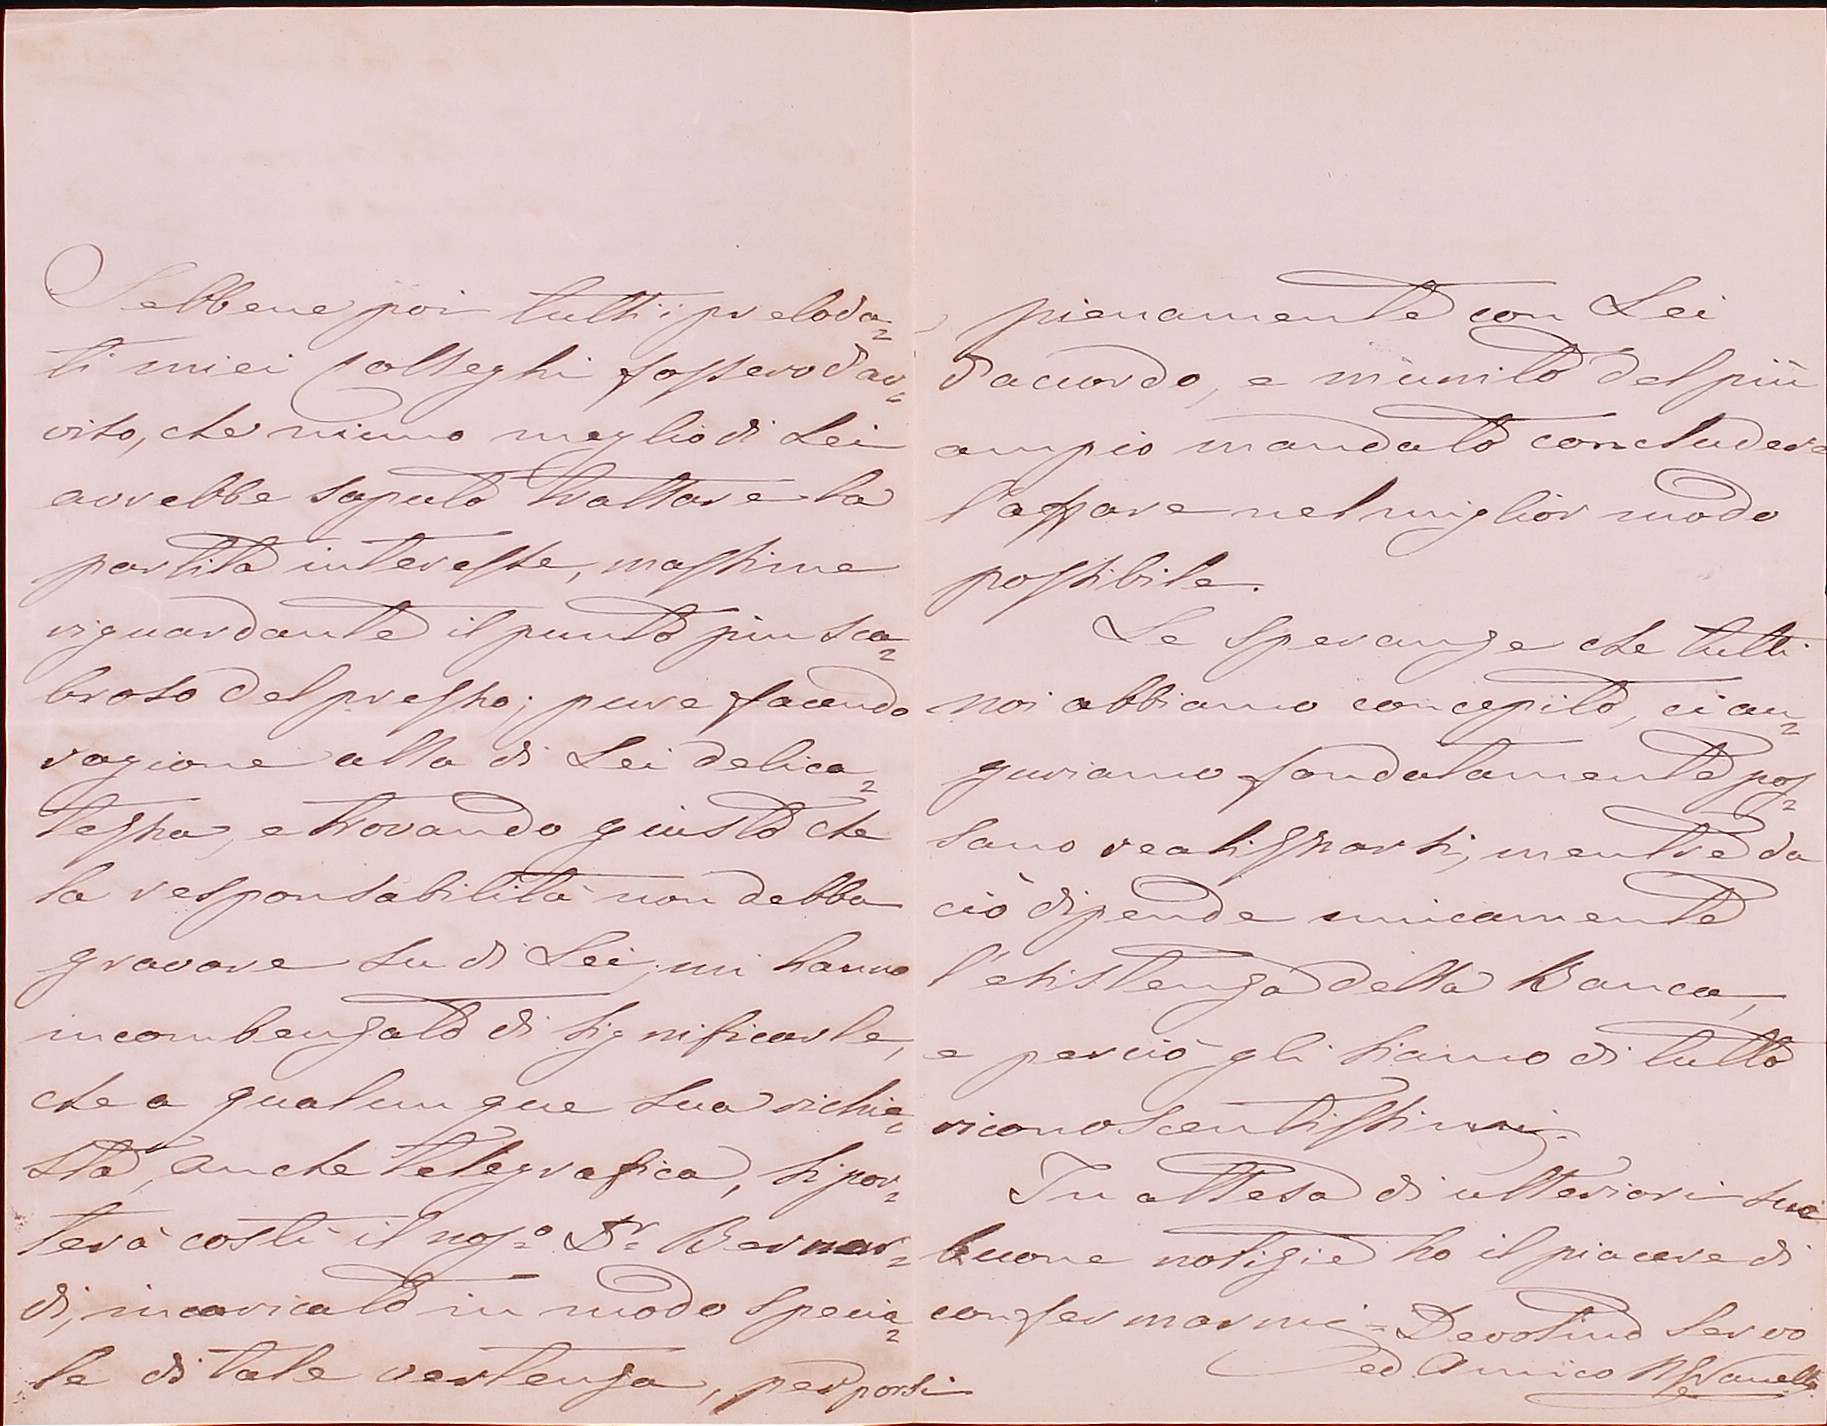 Sebbene poi tutti i preloda=
ti miei Colleghi fossero d'av=
viso, che niuno meglio di Lei
avrebbe saputo trattare la
partita interesse, massime
riguardante il punto piu sca=
broso del prezzo; pure facendo
ragione alla di Lei delica=
tezza, e trovando giusto che
la responsabilità non debba
gravare su di Lei, mi hanno
incombenzato di significarle,
che a qualunque sua richie=
sta, anche telegrafica, si por=
terà costì il nos.o Dr. Bernar=
di, incaricato in modo specia=
le di tale vertenza, per porsi
pienamente con Lei
d'accordo, e munito del più
ampio mandato concludere
l'affare nel miglior modo
possibile.
Le speranze che tutti
noi abbiamo concepito, ci au=
guriamo fondatamente pos=
sano realizzarsi, mentre da
ciò dipende unicamente
l'esistenza della Banca,
e perciò gli siamo di tutto
riconoscentissimi.
In attesa di ulteriori sue
buone notizie ho il piacere di
confermarmi = Devotimo Servo
ed Amico